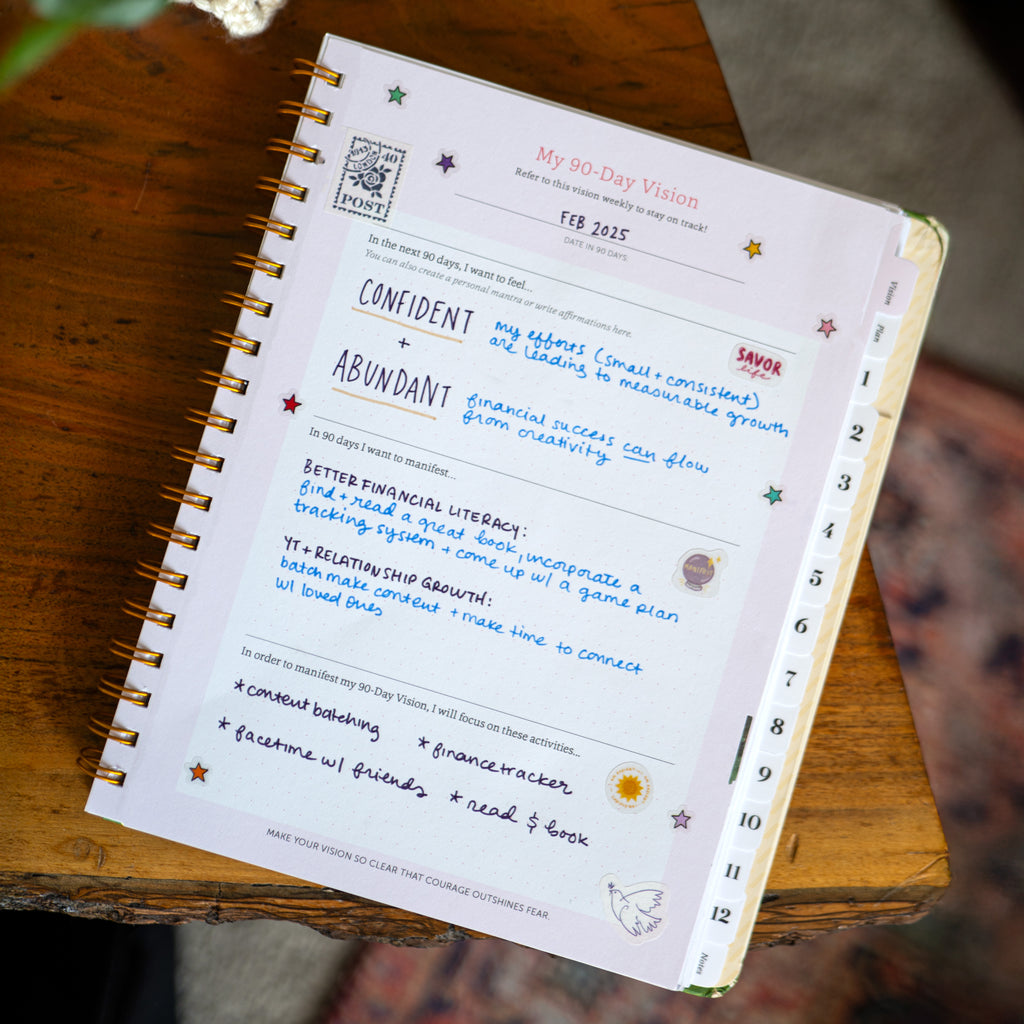 My 90-Day Vision
Refer to this vision weekly to stay on track!
FEB 2025
DATE IN 90 DAYS
1913
LONDON
40
POST
In the next 90 days, I want to feel...
You can also create a personal mantra or write affirmations here.
CONFIDENT
+
ABUNDANT
my efforts (small + consistent)
are leading to measurable growth
SAVOR
life
financial success can flow
from creativity
In 90 days I want to manifest...
BETTER FINANCIAL LITERACY:
find + read a great book, incorporate a
tracking system + come up w/ a game plan
YT + RELATIONSHIP GROWTH:
batch make content + make time to connect
w/ loved ones
MANIFEST
In order to manifest my 90-Day Vision, I will focus on these activities...
*content batching
*finance tracker
*facetime w/ friends
*read $ book
MAKE YOUR VISION SO CLEAR THAT COURAGE OUTSHINES FEAR.
Vision
Plan
1
2
3
4
5
6
7
8
9
10
11
12
Notes